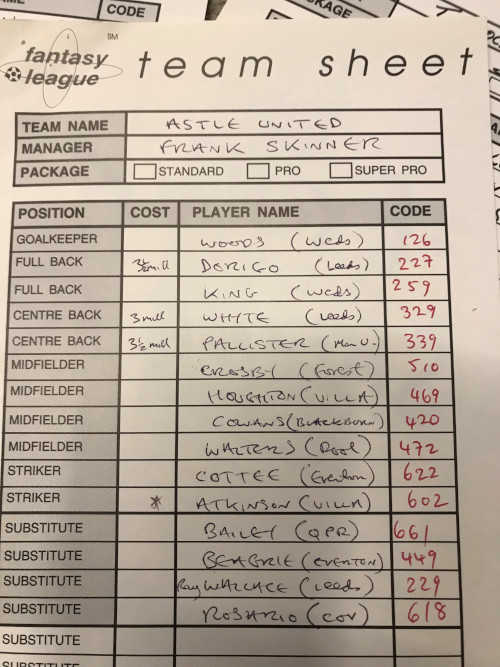 CODE
PACKAGE
fantasy league SM
team sheet
TEAM NAME ASTLE UNITED
MANAGER FRANK SKINNER
PACKAGE STANDARD PRO SUPER PRO
POSITION COST PLAYER NAME CODE
GOALKEEPER WOODS (Weds) 126
FULL BACK 3½mill DORIGO (Leeds) 227
FULL BACK KING (Weds) 259
CENTRE BACK 3 mill WHYTE (Leeds) 329
CENTRE BACK 3½ mill PALLISTER (Man U-) 339
MIDFIELDER CROSBY (Forest) 510
MIDFIELDER HOUGHTON (VILLA) 469
MIDFIELDER COWANS (BLACKBURN) 420
MIDFIELDER WALTERS (Pool) 472
STRIKER COTTEE (Everton) 622
STRIKER * ATKINSON (VILLA) 602
SUBSTITUTE BAILEY (QPR) 661
SUBSTITUTE BEAGRIE (EVERTON) 449
SUBSTITUTE Ray WALLACE (Leeds) 229
SUBSTITUTE ROSARIO (COV) 618
SUBSTITUTE
SUBSTITUTE